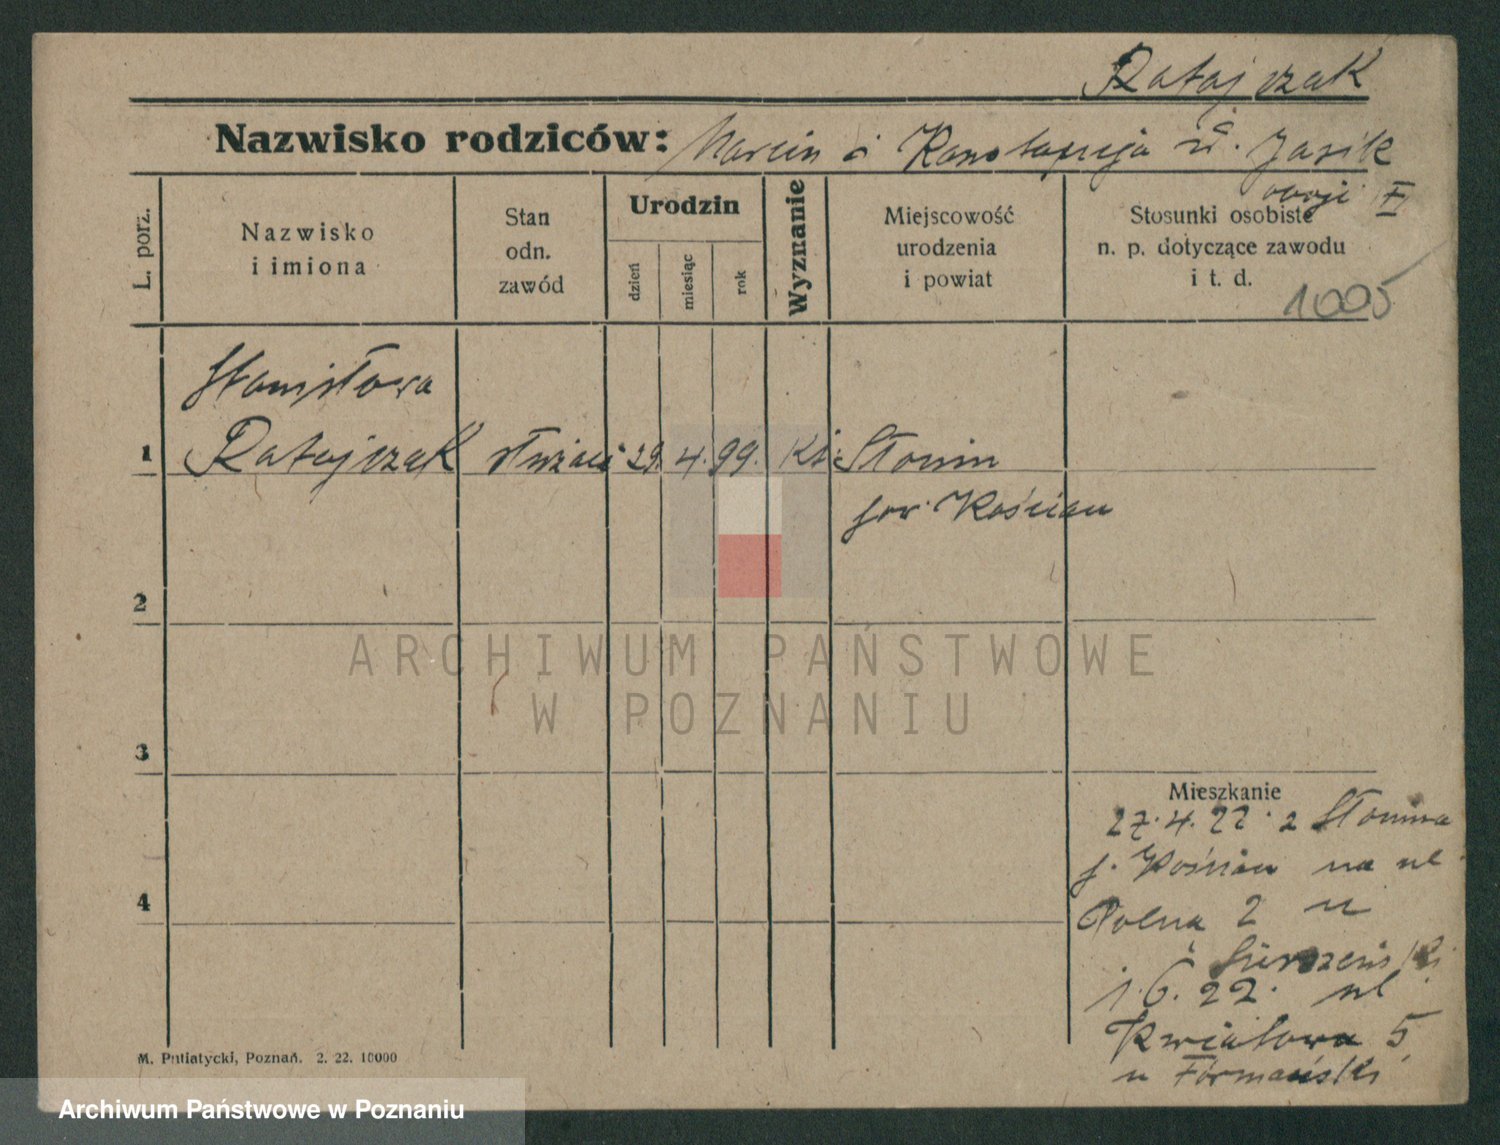 Ratajczak
Nazwisko rodziców: Marcin i Konstancja u. Jasik
L. porz.
Nazwisko
i imiona
Stan
odn.
zawód
Urodzin
dzień
miesiąc
rok
Wyznanie
Miejscowość
urodzenia
i powiat
Stosunki osobiste
n. p. dotyczące zawodu
i t. d.
1005
Stanisława
1 Ratajczak służąca 29. 4. 99. Kt. Słonin
pow. Kościan
2
ARCHIWUM PAŃSTWOWE
W POZNANIU
3
Mieszkanie
27.4.22. z Słonina
p. Kościan na ul.
4
Polna 2 u
1.6.22. ul
Kwiatowa 5
u Formański
M. Putiatycki, Poznań. 2. 22. 10000
Archiwum Państwowe w Poznaniu